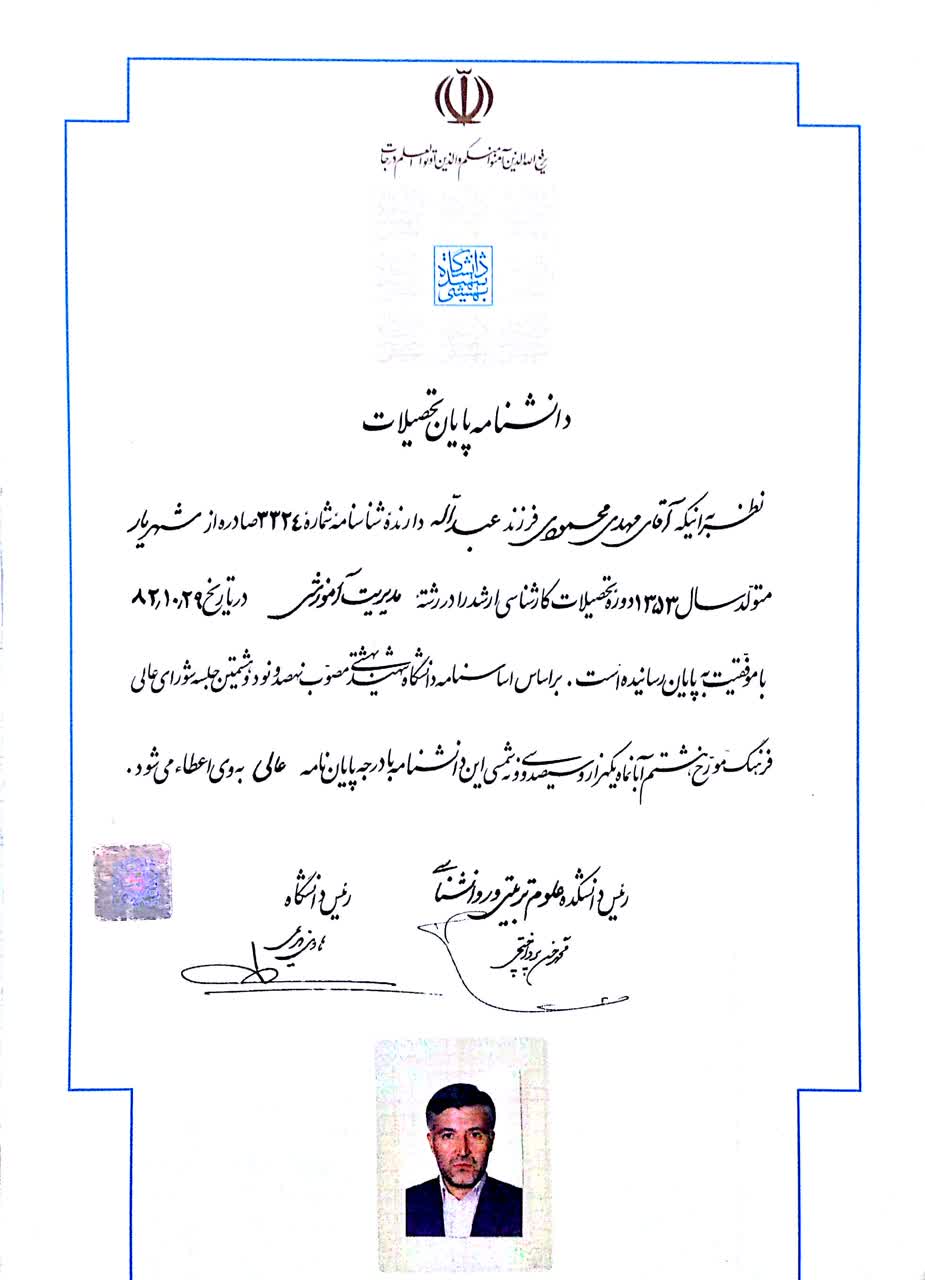 یرفع الله الذین آمنوا منکم والذین اوتوا العلم درجات
دانشگاه شهید بهشتی
دانشنامه پایان تحصیلات
نظر به اینکه آقای مهدی محمودی فرزند عبداله دارنده شناسنامه شماره ۳۳۲۴ صادره از شهریار
متولد سال ۱۳۵۳ دوره تحصیلات کارشناسی ارشد را در رشته مدیریت آموزشی در تاریخ ۸۲،۱۰،۲۹
با موفقیت به پایان رسانیده است. بر اساس اساسنامه دانشگاه شهید بهشتی مصوب نهصد و نود و هشتمین جلسه شورای عالی
فرهنگ مورخ هشتم آبانماه یکهزار و سیصد و سی و نه شمسی این دانشنامه با درجه پایان نامه عالی به وی اعطاء می شود.
رئیس دانشکده علوم تربیتی و روانشناسی
رئیس دانشگاه
محمدحسن پرداختچی
هادی ندیمی